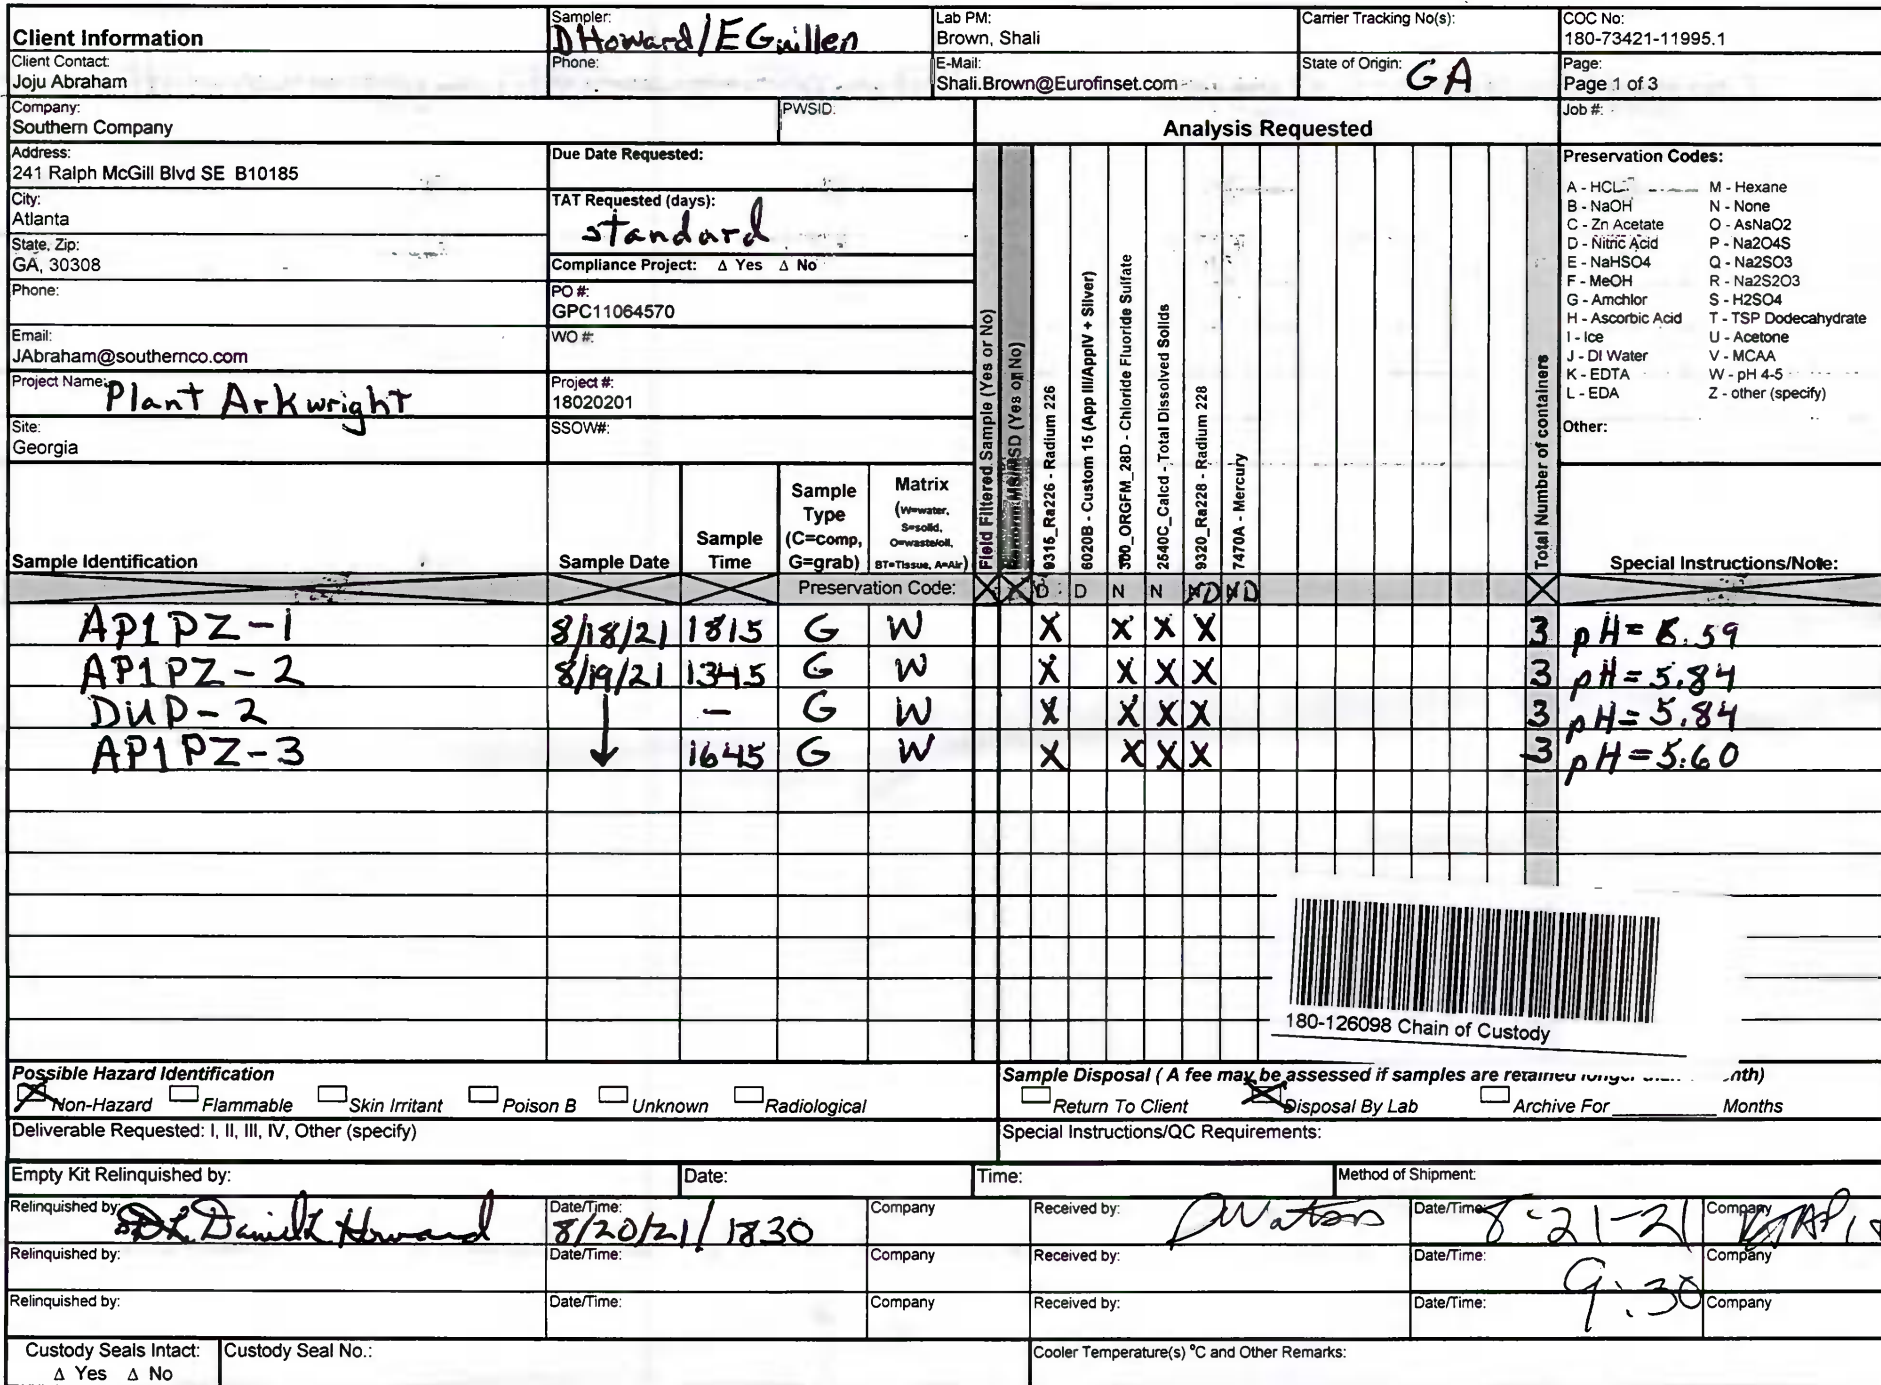 Client Information
Sampler:
D Howard / E Guillen
Lab PM:
Brown, Shali
Carrier Tracking No(s):
COC No:
180-73421-11995.1
Client Contact:
Joju Abraham
Phone:
E-Mail:
Shali.Brown@Eurofinset.com
State of Origin: GA
Page:
Page 1 of 3
Company:
Southern Company
PWSID:
Analysis Requested
Job #:
Address:
241 Ralph McGill Blvd SE B10185
Due Date Requested:
City:
Atlanta
TAT Requested (days):
standard
State, Zip:
GA, 30308
Compliance Project: Δ Yes Δ No
Phone:
PO #:
GPC11064570
Email:
JAbraham@southernco.com
WO #:
Project Name:
Plant Arkwright
Project #:
18020201
Site:
Georgia
SSOW#:
Preservation Codes:
A - HCL M - Hexane
B - NaOH N - None
C - Zn Acetate O - AsNaO2
D - Nitric Acid P - Na2O4S
E - NaHSO4 Q - Na2SO3
F - MeOH R - Na2S2O3
G - Amchlor S - H2SO4
H - Ascorbic Acid T - TSP Dodecahydrate
I - Ice U - Acetone
J - DI Water V - MCAA
K - EDTA W - pH 4-5
L - EDA Z - other (specify)
Other:
Sample Identification
Sample Date
Sample Time
Sample Type (C=comp, G=grab)
Matrix (W=water, S=solid, O=waste/oil, BT=Tissue, A=Air)
Field Filtered Sample (Yes or No)
Perform MS/MSD (Yes or No)
9315_Ra226 - Radium 226
6020B - Custom 15 (App III/AppIV + Silver)
300_ORGFM_28D - Chloride Fluoride Sulfate
2540C_Calcd - Total Dissolved Solids
9320_Ra228 - Radium 228
7470A - Mercury
Total Number of containers
Special Instructions/Note:
Preservation Code: X X D D N N D D X
AP1PZ-1 8/18/21 1815 G W X X X X 3 pH = .59
AP1PZ-2 8/19/21 1345 G W X X X X 3 pH = 5.84
DUP-2 ↓ - G W X X X X 3 pH = 5.84
AP1PZ-3 1645 G W X X X X 3 pH = 5.60
180-126098 Chain of Custody
Possible Hazard Identification
Non-Hazard Flammable Skin Irritant Poison B Unknown Radiological
Sample Disposal ( A fee may be assessed if samples are retained
Return To Client Disposal By Lab Archive For ________ Months
Deliverable Requested: I, II, III, IV, Other (specify)
Special Instructions/QC Requirements:
Empty Kit Relinquished by:
Date:
Time:
Method of Shipment:
Relinquished by: Daniel Howard
Date/Time: 8/20/21 / 1830
Company
Received by: DWatson
Date/Time: 8-21-21
9:30
Company
Relinquished by:
Date/Time:
Company
Received by:
Date/Time:
Company
Relinquished by:
Date/Time:
Company
Received by:
Date/Time:
Company
Custody Seals Intact:
Δ Yes Δ No
Custody Seal No.:
Cooler Temperature(s) °C and Other Remarks: